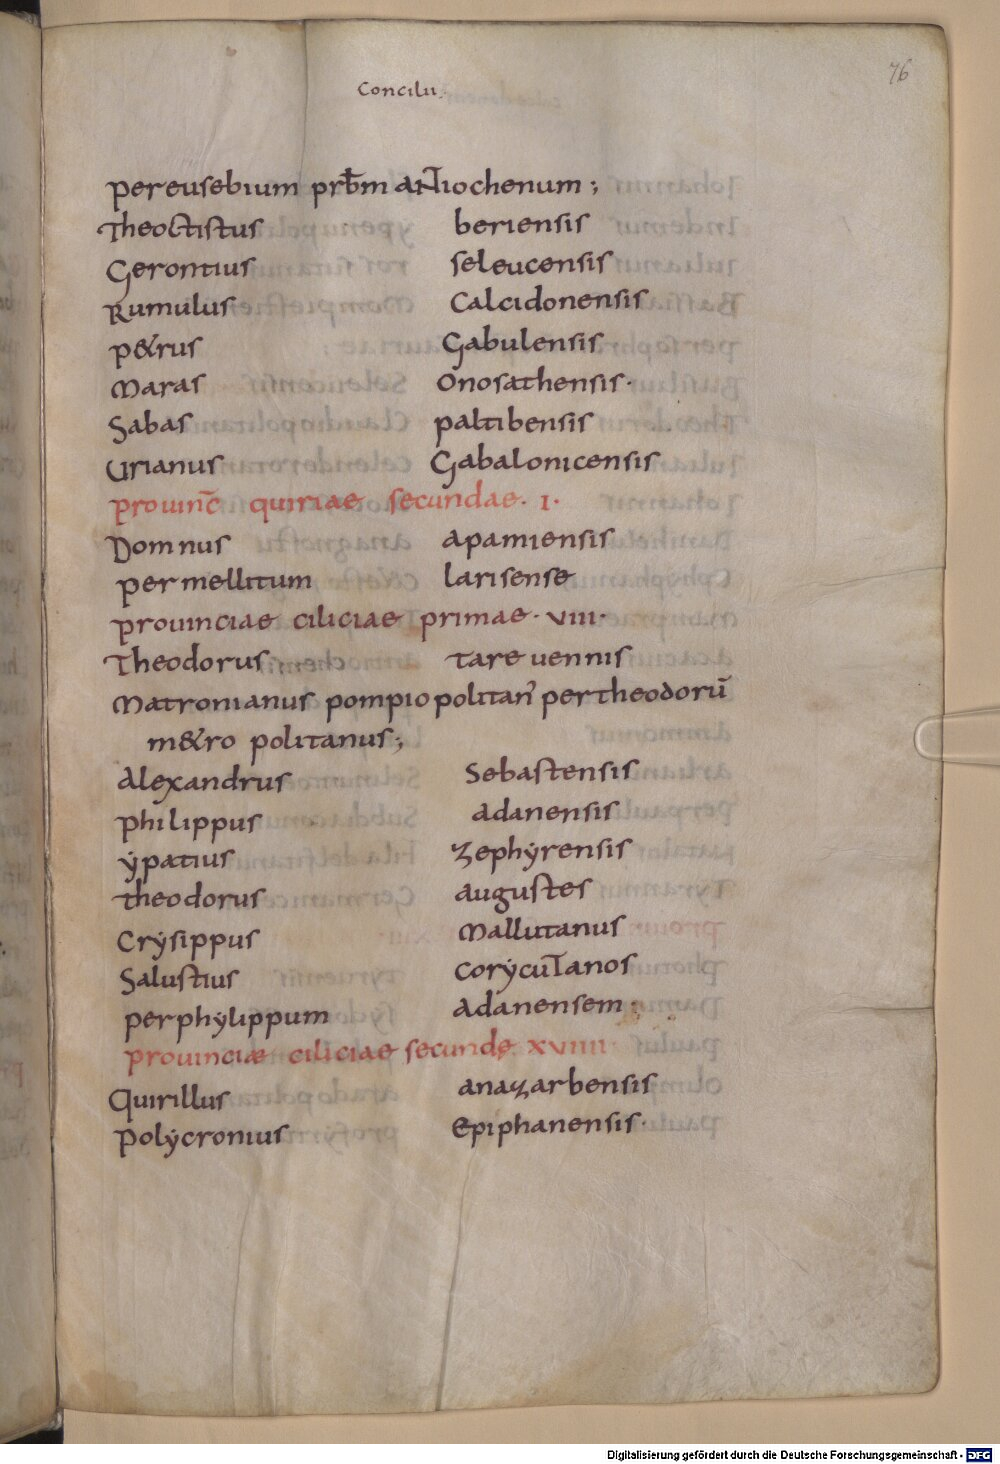 76
Concilii.
per eusebium prbm antiochenum ;
Theoctistus beriensis
Gerontius seleucensis
Rumulus Calcidonensis
p&rus Gabulensis
Maras Onosathensis.
Sabas paltibensis
Urianus Gabalonicensis
prouinc̄ quiriae secundae. I.
Domnus apamiensis
per mellitum larisense
prouinciae ciliciae primae. VIII.
Theodorus tareuennis
Matronianus pompiopolitan' per theodorū
m&ropolitanus ;
Alexandrus Sebastensis
philippus adanensis
ẏpatius zephẏrensis
theodorus augustes
Crẏsippus Mallutanus
Salustius corẏcutanos
per phẏlippum adanensem.
prouinciæ ciliciae secundę XVIIII
Quirillus anazarbensis
polẏcronius Epiphanensis.
Digitalisierung gefördert durch die Deutsche Forschungsgemeinschaft - DFG